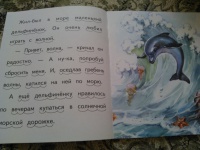 Жил-был в море маленький
дельфинёнок. Он очень любил
играть с волной.
— Привет, волна, — кричал по
радостно. — А ну-ка, попробуй
сбросить меня. И, оседлав гребень
волны, катился на ней по морю.
А ещё дельфинёнку нравилось
по вечерам купаться в солнечной
морской дорожке.